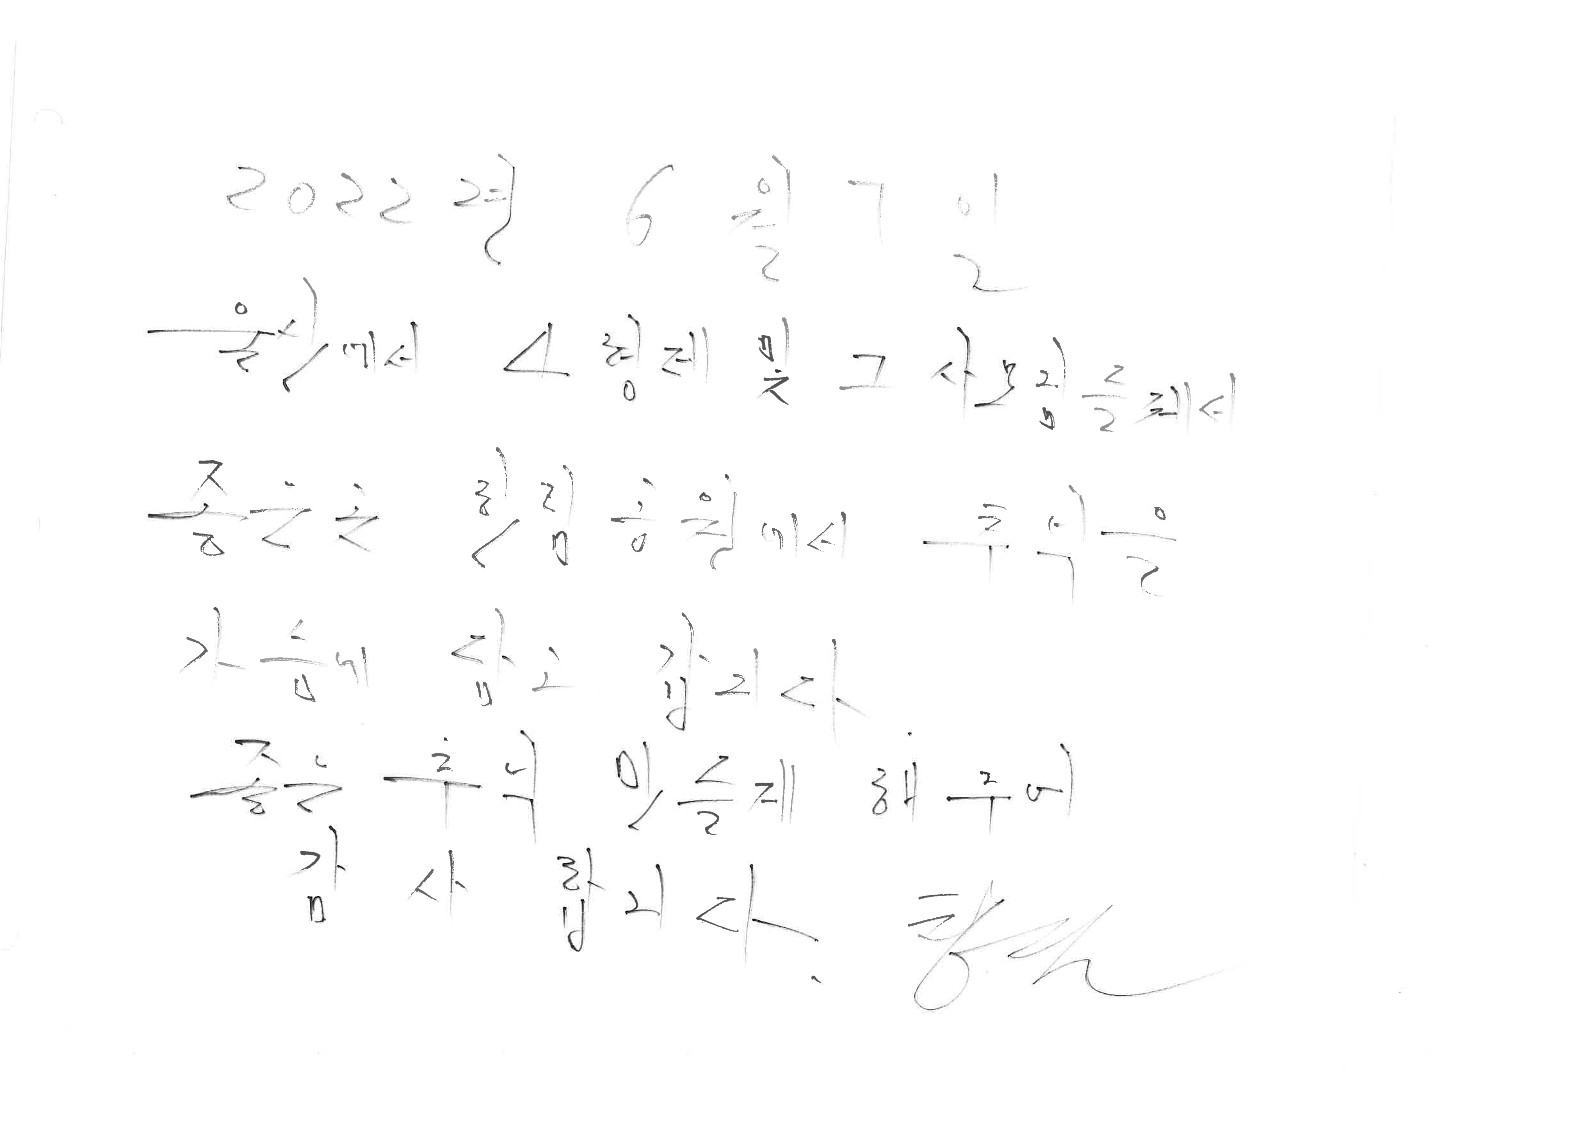 2022년 6월 7일
울산에서 4형제 및 그 사모님들께서
좋은 한림공원에서 추억을
가슴에 담고 갑니다
좋은 추억 만들게 해주어
감사합니다.